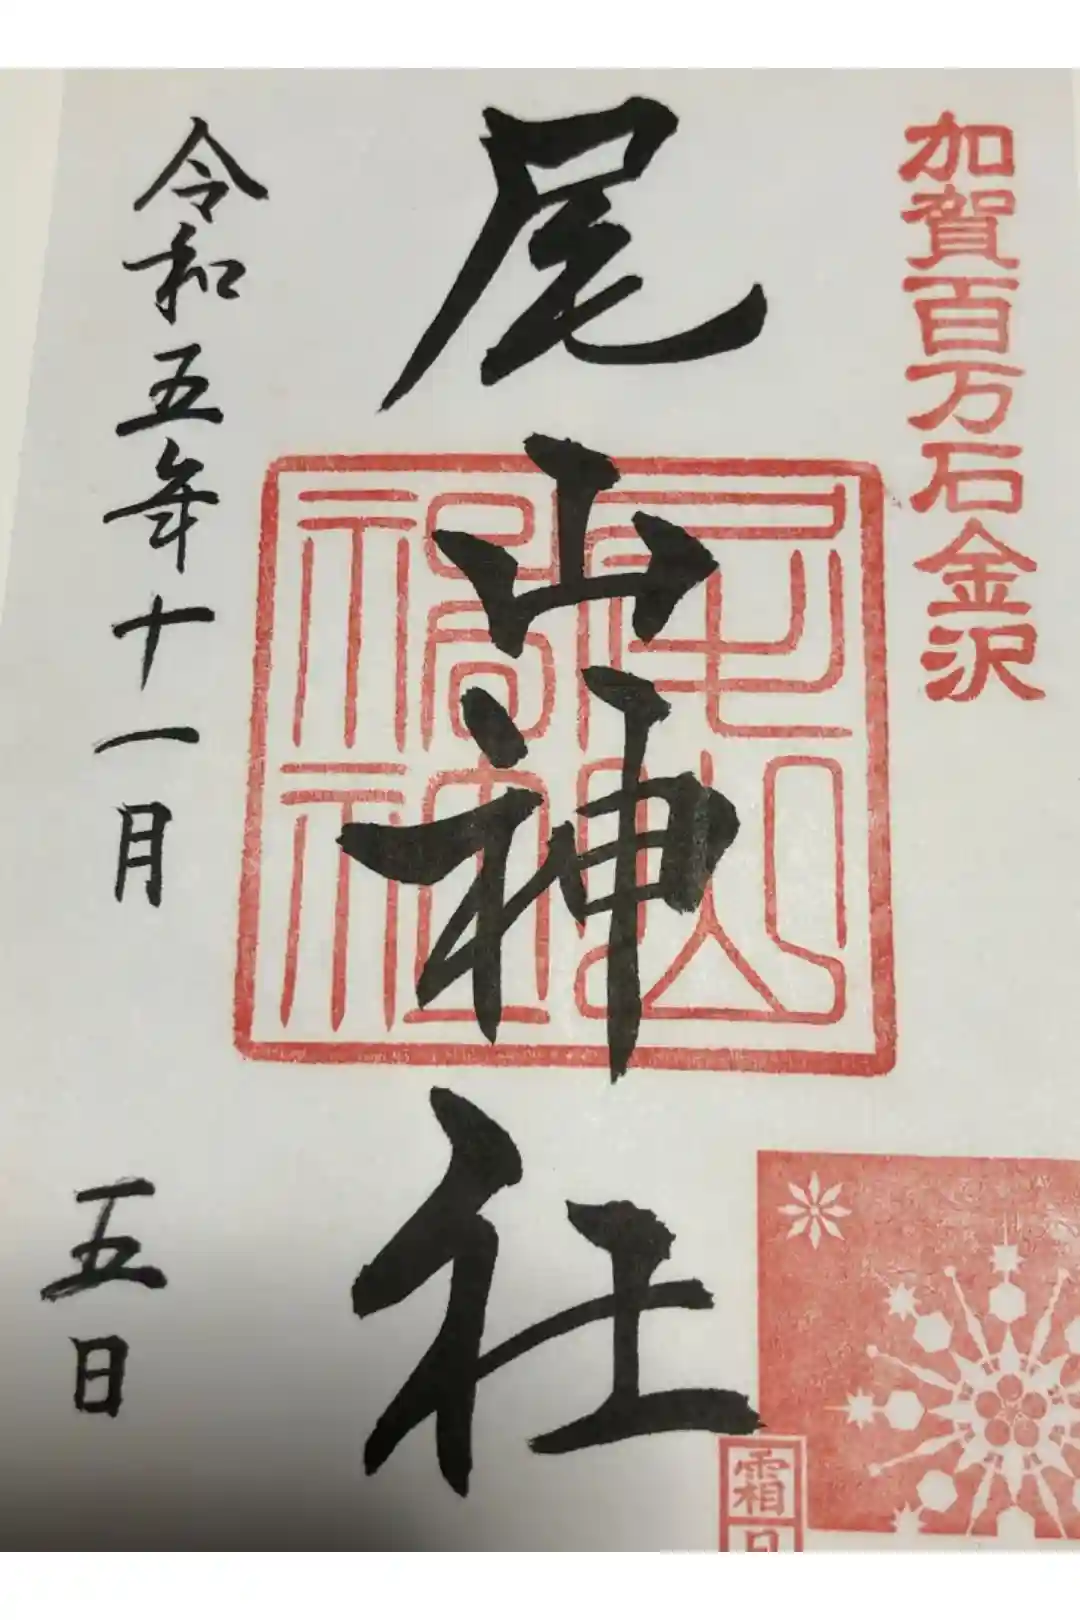 加賀百万石金沢
尾山神社
令和五年十一月五日
霜月